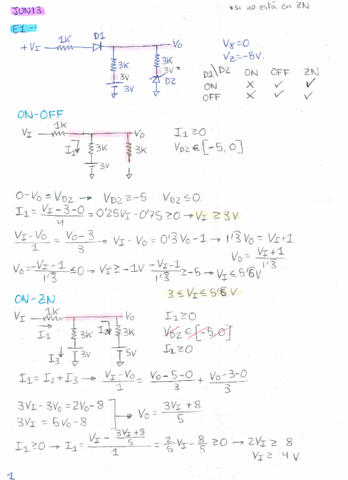 JUN13
*si no está en ZN
E1-
+VI 1K D1 Vo
3K 3K
3V 3V*
3V D2
Vγ=0
VZ=-5V.
D1\D2 ON OFF ZN
ON X ✓ ✓
OFF X ✓ ✓
ON-OFF
VI 1K Vo
I1 3K 3K
3V
I1≥0
VD2 ∈ [-5,0]
0-Vo=VD2 → VD2≥-5 VD2≤0
I1= VI-3-0/4 =0'25VI-0'75≥0→VI≥3V.
VI-Vo/1 = Vo-3/3 → VI-Vo=0'3Vo-1→1'3Vo=VI+1
Vo= VI+1/1'3
Vo= -VI-1/1'3 ≤0→VI≥-1V -VI-1/1'3 ≥-5→VI≤5'6V
3≤VI≤5'6V
ON-ZN
VI 1K Vo
I1 3K I2 3K
I3 3V 5V
I1≥0
VD2 ∈ [-5,0]
I2≥0
I1=I2+I3→ VI-Vo/1 = Vo-5-0/3 + Vo-3-0/3
3VI-3Vo=2Vo-8
3VI=5Vo-8
Vo= 3VI+8/5
I1≥0→I1= VI- 3VI+8/5 /1 = 2/5 VI- 8/5 ≥0→2VI≥8
VI≥4V.
1